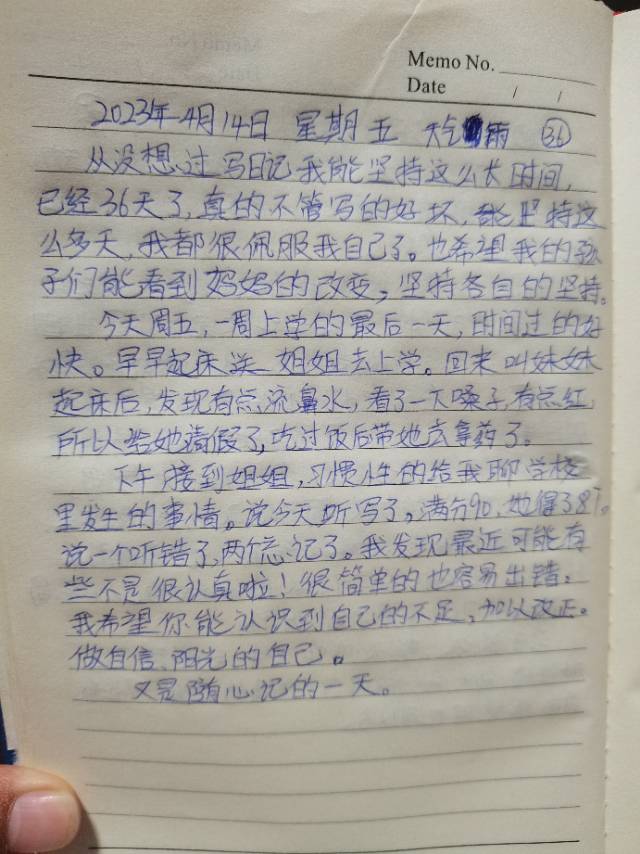 Memo No.
Date / /
2023年4月14日 星期五 天气 雨 36
从没想过写日记我能坚持这么长时间,
已经36天了,真的不管写的好坏,能坚持这
么多天,我都很佩服我自己了。也希望我的孩
子们能看到妈妈的改变,坚持各自的坚持。
今天周五,一周上学的最后一天,时间过的好
快。早早起床送 姐姐去上学。回来叫妹妹
起床后,发现有点流鼻水,看了一下嗓子,有点红,
所以给她请假了,吃过饭后带她去拿药了。
下午接到姐姐,习惯性的给我聊学校
里发生的事情。说今天听写了,满分90,她得了87。
说一个听错了,两个忘记了。我发现最近可能有
些不是很认真啦!很简单的也容易出错。
我希望你能认识到自己的不足,加以改正。
做自信、阳光的自己。
又是随心记的一天。